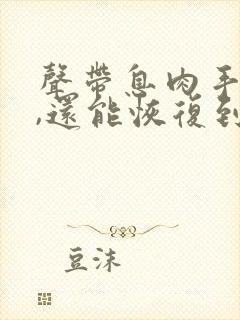 聲帶息肉手
,還能恢復到
豆沫